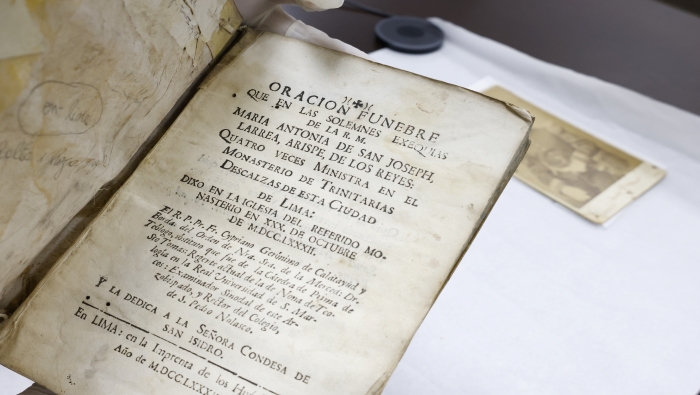 ORACION FUNEBRE
QUE EN LAS SOLEMNES EXEQUIAS
DE LA R. M.
MARIA ANTONIA DE SAN JOSEPH,
LARREA, ARISPE, DE LOS REYES:
QUATRO VECES MINISTRA EN EL
MONASTERIO DE TRINITARIAS
DESCALZAS DE ESTA CIUDAD
DE LIMA:
DIXO EN LA IGLESIA DEL REFERIDO MO-
NASTERIO EN XXX. DE OCTUBRE
DE M.DCC.LXXXII.
El R. P. Pr. Fr. Cypriano Gerónimo de Calatayud y
Borda, del Orden de Nra. Sra. de la Merced: Dr.
Teólogo, que fue de la Cátedra de Prima de
Sto Tomás: Regente actual de la de Nona de Teo-
logía en la Real Universidad de S. Mar-
cos: Examinador Sinodal de este Ar-
zobispado, y Rector del Colegio,
de S. Pedro Nolasco.
Y LA DEDICA A LA SEÑORA CONDESA DE
SAN ISIDRO.
En LIMA: en la Imprenta de los
Año de M.DCC.LXXX